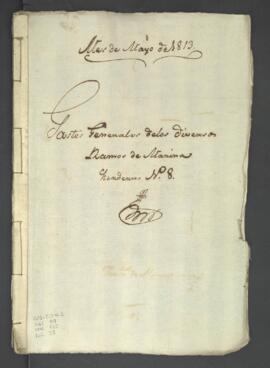 Mes de Mayo de 1813.
Gastos Generales de los diversos
Ramos de Marina
Quaderno N.º 8.